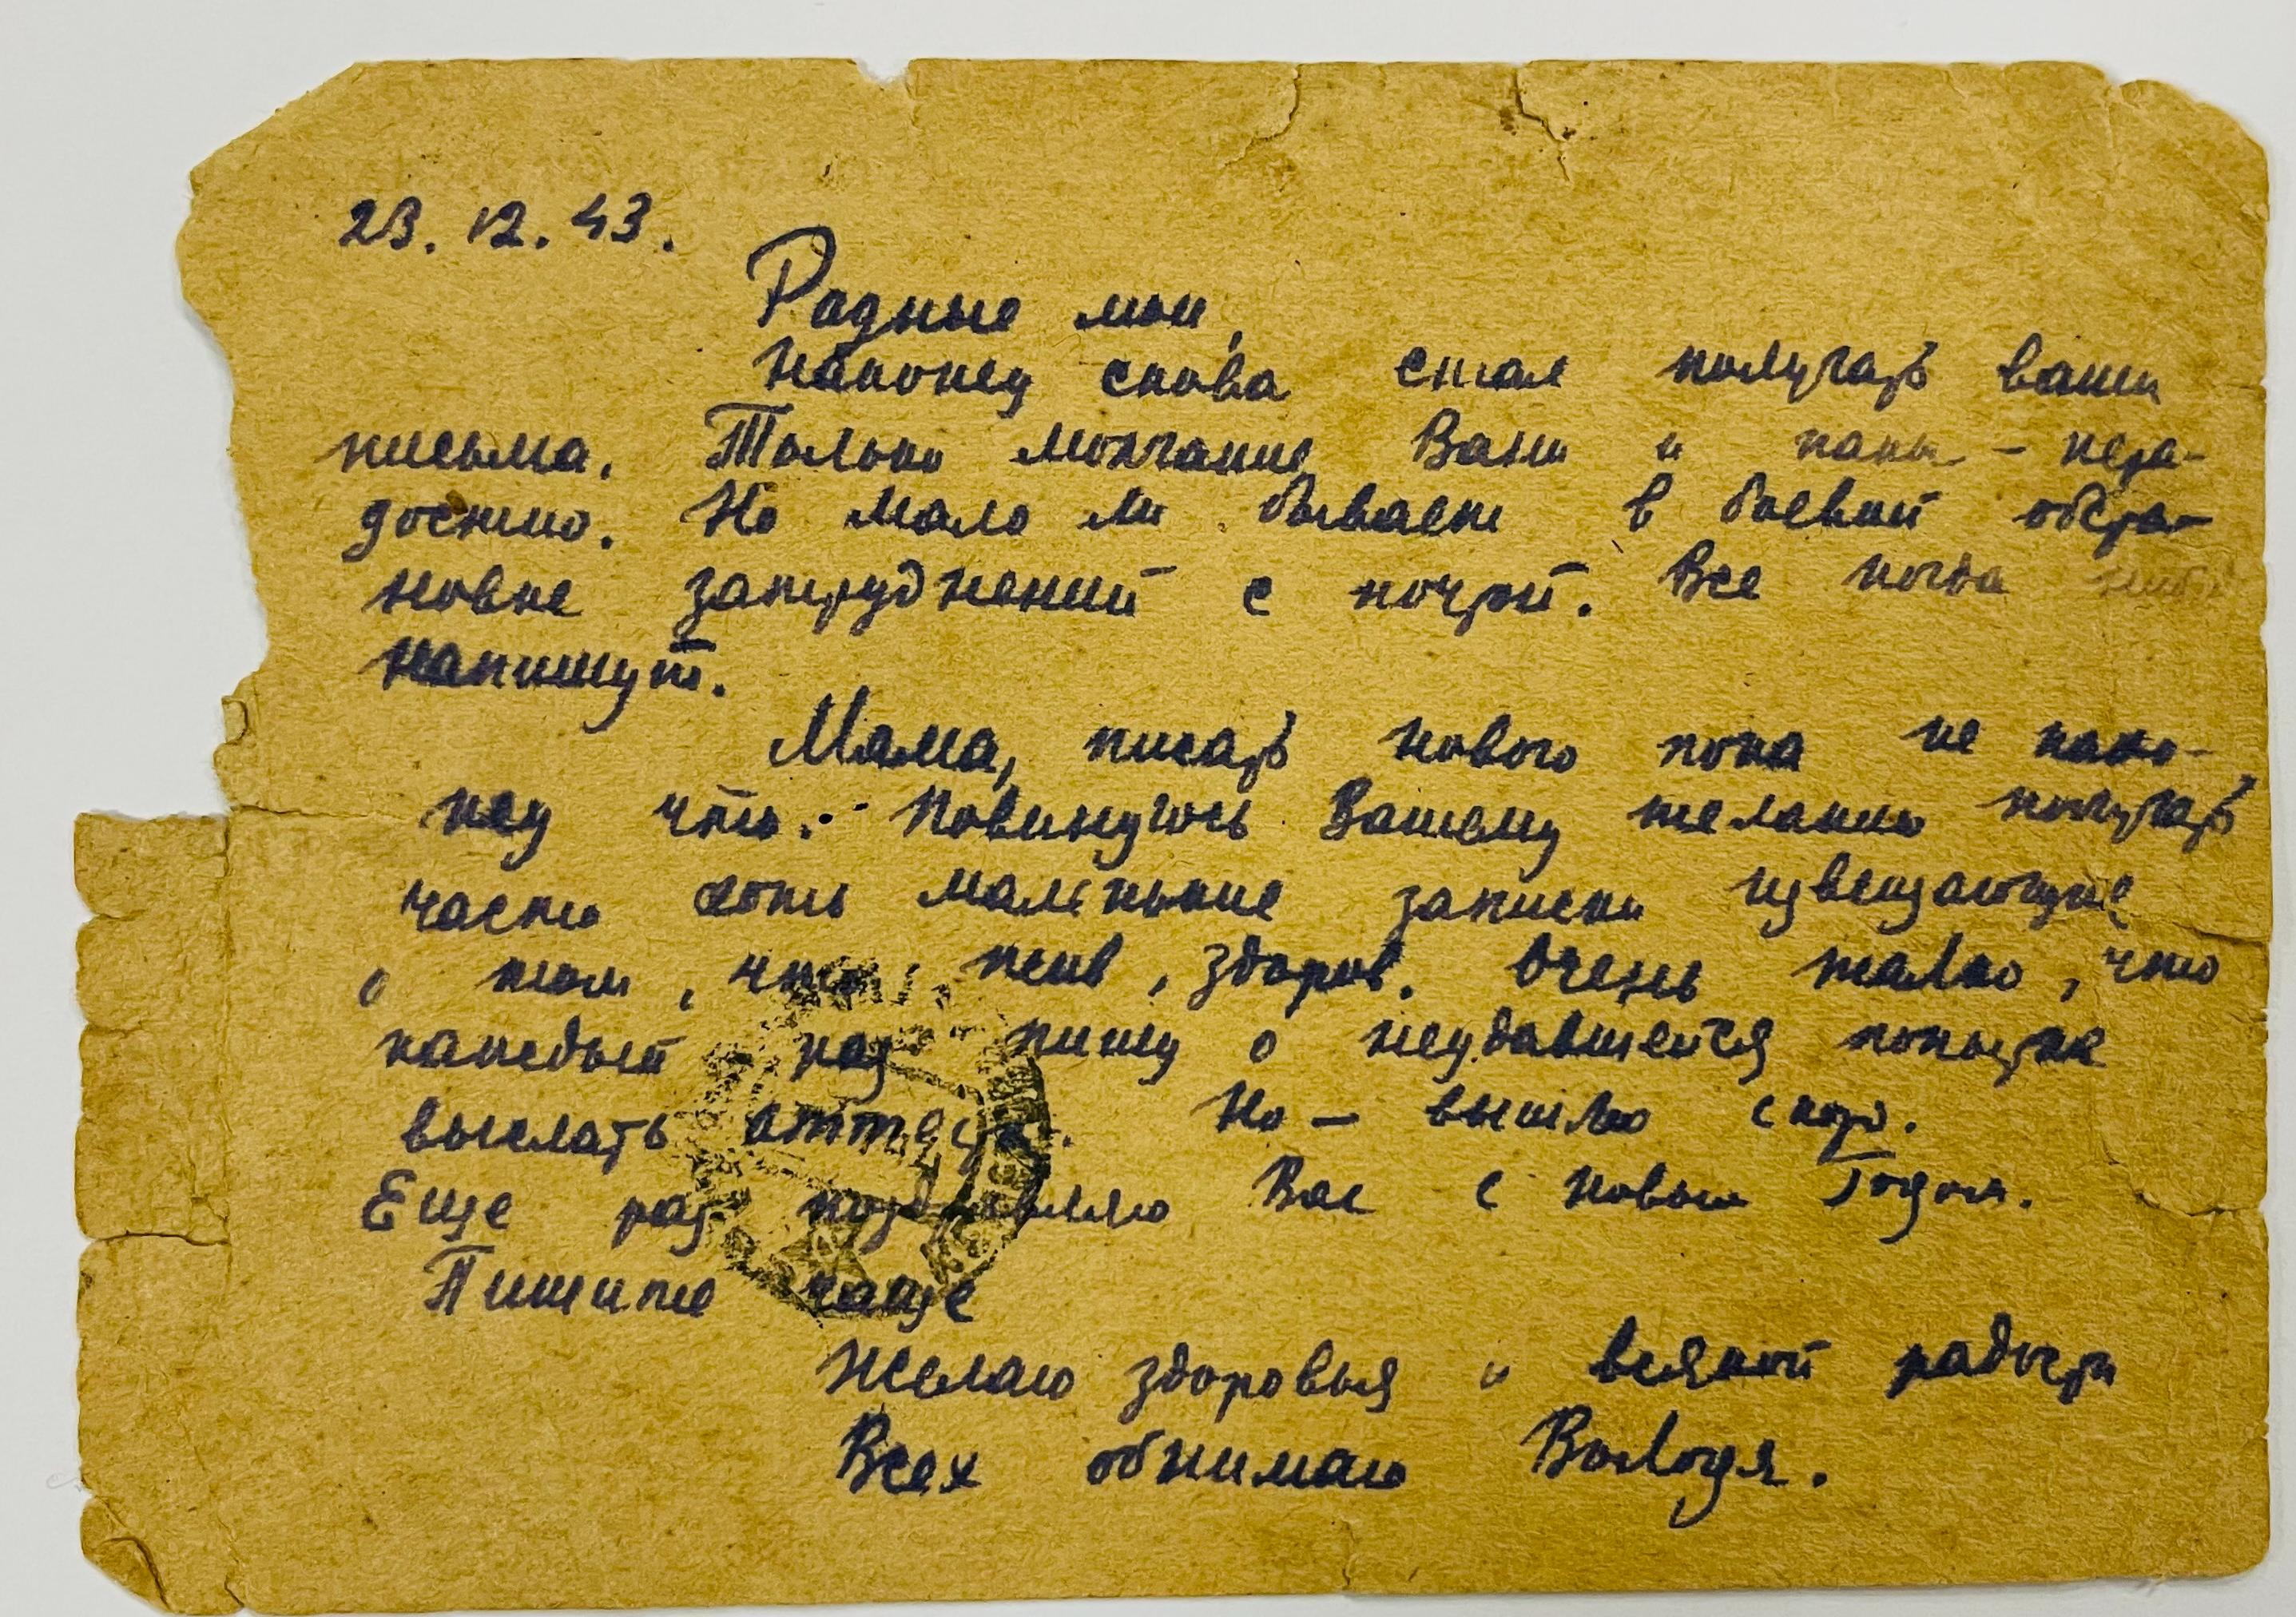 23.12.43.
Родные мои,
Наконец снова стал получать ваши
письма. Только молчание Вани и папы – нера-
достно. Но мало ли бывает в боевой обста-
новке затруднений с почтой. Все когда нибудь
напишут.
Мама, писать нового пока не нахо-
жу что. Повинуюсь Вашему желанию получать
часто хоть маленькие записки извещающие
о том, что жив, здоров. Очень жалко, что
каждый раз пишу о неудавшейся попытке
выслать аттест. Но – вышлю скоро.
Еще раз поздравляю Вас с новым Годом.
Пишите чаще
Желаю здоровья и всякой радости
Всех обнимаю Володя.